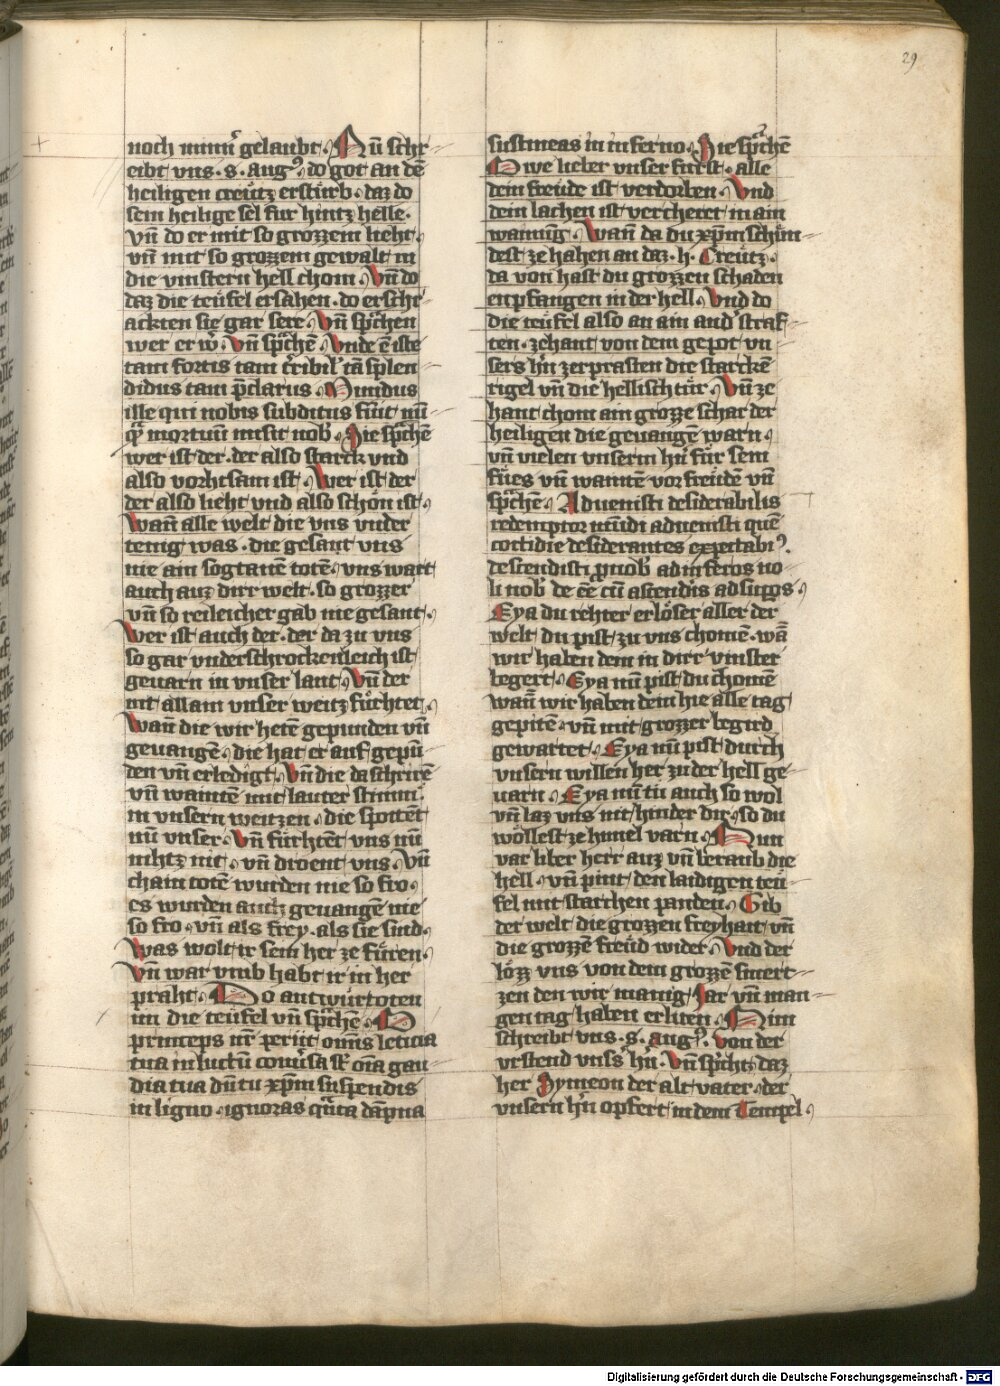 29
noch nimm̃ gelaubt. Nu schr-
eibt vns .s. aug⁹. do got an dē
heiligen creütz ersturb. daz do
sein heilige sel fur hintz helle.
vn̄ do er mit so grozzem lieht.
vn̄ mit so grozzem gewalt in
die vinstern hell chom. Vn̄ do
daz die teüfel ersahen. do erschr-
ackten sie gar sere. Vn̄ sprͣchen
wer er w̾. Vn̄ sprͣchē Vnde ē iste
tam fortis tam t̾ribil' tā splen-
didus tam p̄clarus. Mundus
ille qui nobis subditus fuit nū-
qͣ mortuū misit nob̾. Sie sprͣchē
wer ist der. der also starck vnd
also vorhtsam ist. Wer ist der
der also lieht vnd also schön ist.
Wann̄ alle welt die vns vnder
tenig was. die gesant vns
nie ain sogtanē totē. vns wart
auch auz dirr welt. so grozzer
vn̄ so reileicher gab nie gesant.
Wer ist auch der. der da zu vns
so gar vnderschrockenleich ist
geuarn in vnser lant. Vn̄ der
nit allain vnser weitz fürchtet.
Wann̄ die wir hetē gepunden vn̄
geuangē. die hat er auf gepū-
den vn̄ erledigt. Vn̄ die da schrirē
vn̄ waintē mit lauter stimm̄.
in vnsern weitzen. die spottēt
nū vnser. Vn̄ fürhtēt vns nū
nihtz nit. vn̄ droent vns. Vn̄
chain totē wurden nie so fro.
es wurden auch geuangē nie
so fro. vn̄ als frey. als sie sind.
Was wolt ir sein her ze füren.
Vn̄ war vmb habt ir in her
praht. Do antwurtoten
im die teüfel vn̄ sprͣchē. O
princeps nr̄ periit om̄s leticia
tua in luctū conu̾sa ē oīa gau-
dia tua dū tu xp̄m suspendis
in ligno. ignoras qͣnta dāpna
sustineas in inferno. Sie sprͣchē
Owe lieber vnser fürst. alle
dein freüde ist verdorben. Vnd
dein lachen ist vercheret in ain
wainūg. Wann̄ da du xp̄m schün-
dest ze hahen an daz .h. Creütz.
da von hast du grozzen schaden
enpfangen in der hell. Vnd do
die teüfel also an ain and̾ straf-
ten. zehant von dem gepot vn-
sers hn̄ zerprasten die starckē
rigel vn̄ die hellisch tür. Vn̄ ze
hant chom ain grozze schar der
heiligen die geuangē warn.
vn̄ vielen vnserm hn̄ für sein
fües vn̄ waintē vor freüdē vn̄
sprͣchē. Aduenisti desiderabilis
redemptor mūdi aduenisti quē
cottidie desiderantes expectabi⁹.
descendisti ꝓ nob̾ ad inferos no-
li nob̾ de ēē cū ascendis ad suꝑos.
Eya du rehter erlöser aller der
welt du pist zu vns chomē. wā
wir haben dein in dirr vinster
begert. Eya nū pist du chomē
wann̄ wir haben dein hie alle tag
gepitē. vn̄ mit grozzer begird
gewartet. Eya nū pist durch
vnsern willen her zu der hell ge-
uarn. Eya nū tü auch so wol
vn̄ laz vns nit hinder dir. so du
wöllest ze himel varn. Nun
var liber herr auz vn̄ beraub die
hell. vn̄ pint den laidigen teü-
fel mit starchen panden. Gib
der welt die grozzen freyhait vn̄
die grozzē freüd wider. Vnd der
lözz vns von dem grozzē smert-
zen den wir manig Jar vn̄ man-
gen tag haben erliten. Nun
schreibt vns .s. aug⁹. von der
vrstend vns̾s hn̄. Vn̄ sprͥcht. daz
her Symeon der alt vater. der
vnsern hn̄ opfert in dem Tempel.
Digitalisierung gefördert durch die Deutsche Forschungsgemeinschaft - DFG